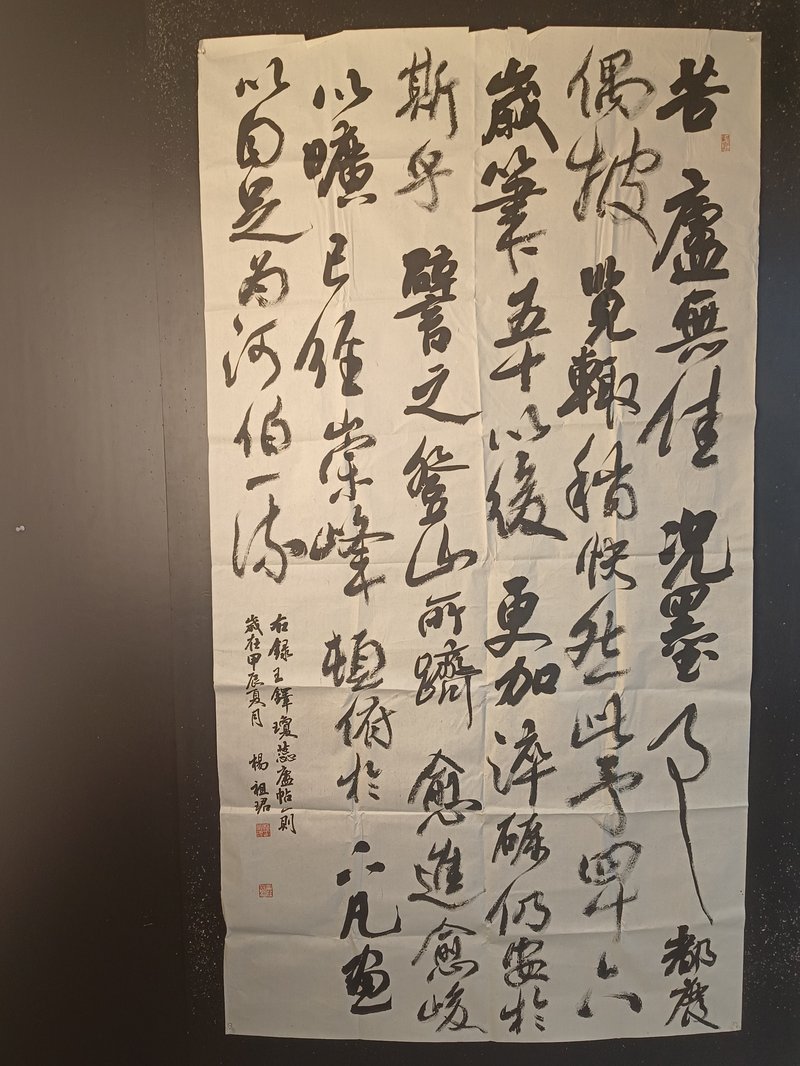 苦廬無佳况墨事都廢
偶披覽輒稍快然此予四十六
歲筆五十以後更加淬礪仍安於
斯乎譬之登山所躋愈進愈峻
以曠已經崇峰頓俯於下凡畫
以自足為河伯一流
右錄王鐸瓊蕊廬帖一則
歲在甲辰夏月 楊祖珺